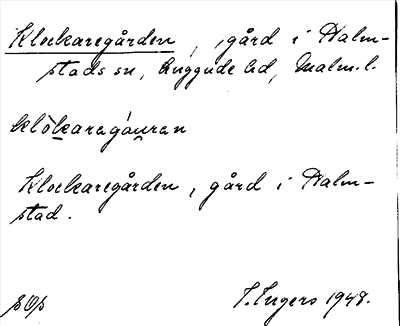 Klockaregården, gård i Halm-
stads sn, Luggude hd, Malm. l.
klòkaragá̊uran
Klockaregården, gård i Halm-
stad.
I. Ingers 1948.